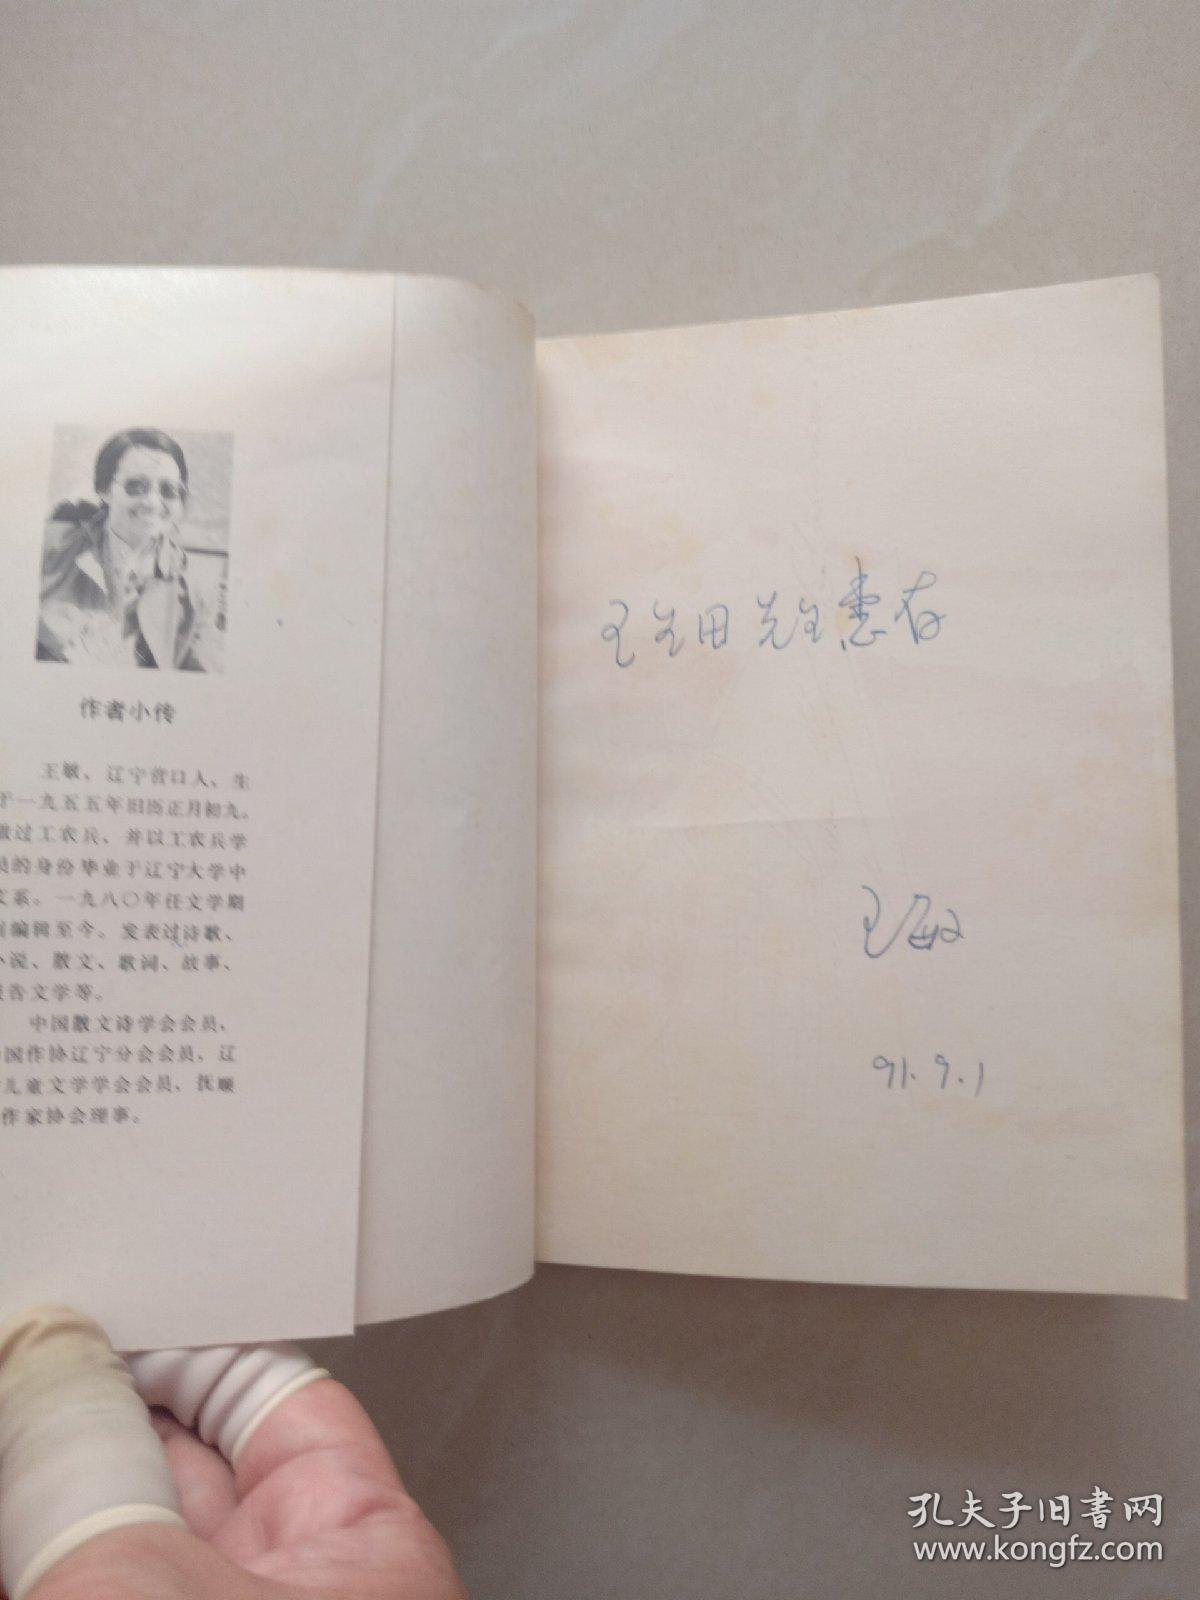 作者小传
王敏、辽宁营口人、生
于一九五五年旧历正月初九。
做过工农兵，并以工农兵学
员的身份毕业于辽宁大学中
文系。一九八〇年任文学期
刊编辑至今。发表过诗歌、
小说、散文、歌词、故事、
报告文学等。
中国散文诗学会会员，
国作协辽宁分会会员，辽
儿童文学学会会员，抚顺
作家协会理事。
王 田 先生惠存
王敏
91.9.1
孔夫子旧書网
www.kongfz.com